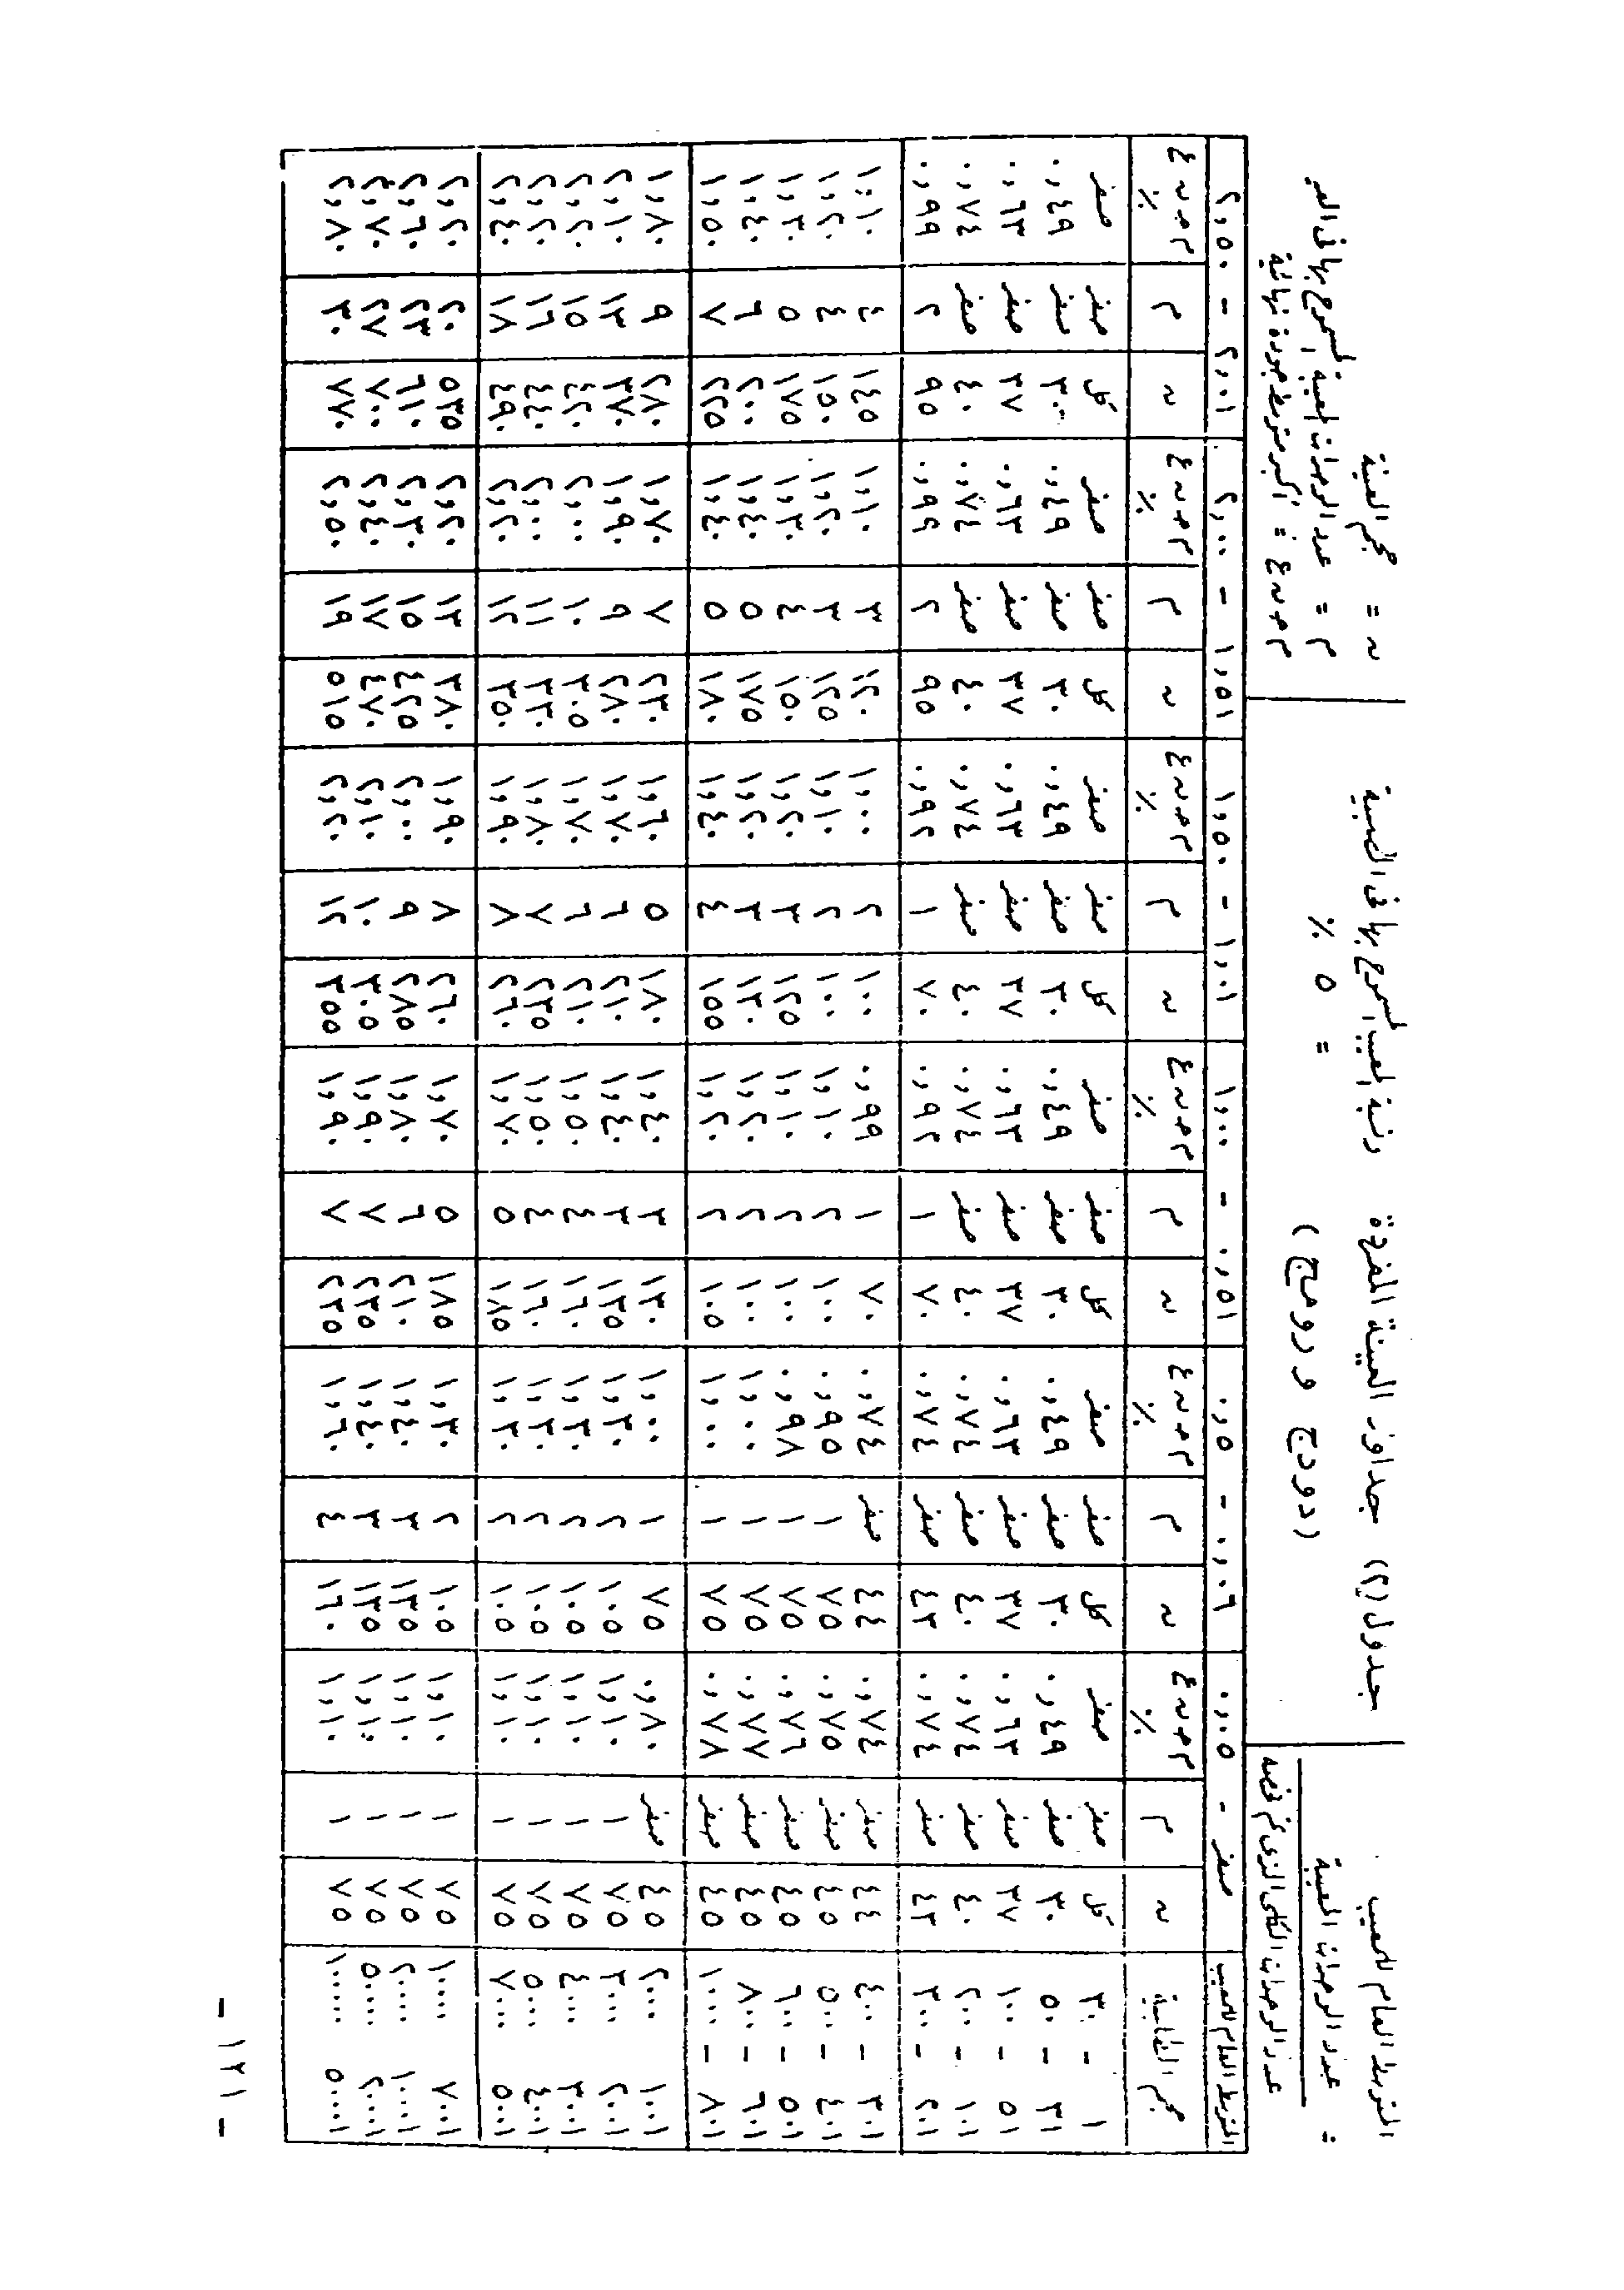 المتوسط العام للمعيب
= عدد الوحدات المعيبة
عدد الوحدات الكلى الذى تم فحصه
جدول (٢) جداول العينة المفردة ونسبة المعيب المسموح بها فى العينة
(دودج و رومج) = ٥ ٪
ن = حجم العينة
م = عدد الوحدات المعيبة المسموح بها فى العينة
م ج ن ع = أكبر متوسط جودة نهائية
المتوسط العام للمعيب صفر - ٠,٠٥ ٠,٠٦ - ٠,٥ ٠,٥١ - ١,٠٠ ١,٠١ - ١,٥٠ ١,٥١ - ٢,٠٠ ٢,٠١ - ٢,٥٠
حجم اللقانية ن م م ج ن ع ٪ ن م م ج ن ع ٪ ن م م ج ن ع ٪ ن م م ج ن ع ٪ ن م م ج ن ع ٪ ن م م ج ن ع ٪
١ - ٣٠ كل صفر صفر كل صفر صفر كل صفر صفر كل صفر صفر كل صفر صفر كل صفر صفر
٣١ - ٥٠ ٣٠ صفر ٠,٤٩ ٣٠ صفر ٠,٤٩ ٣٠ صفر ٠,٤٩ ٣٠ صفر ٠,٤٩ ٣٠ صفر ٠,٤٩ ٣٠ صفر ٠,٤٩
٥١ - ١٠٠ ٣٧ صفر ٠,٦٣ ٣٧ صفر ٠,٦٣ ٣٧ صفر ٠,٦٣ ٣٧ صفر ٠,٦٣ ٣٧ صفر ٠,٦٣ ٣٧ صفر ٠,٦٣
١٠١ - ٢٠٠ ٤٠ صفر ٠,٧٤ ٤٠ صفر ٠,٧٤ ٤٠ صفر ٠,٧٤ ٤٠ صفر ٠,٧٤ ٤٠ صفر ٠,٧٤ ٤٠ صفر ٠,٧٤
٢٠١ - ٣٠٠ ٤٣ صفر ٠,٧٤ ٤٣ صفر ٠,٧٤ ٧٠ ١ ٠,٩٢ ٧٠ ١ ٠,٩٢ ٩٥ ٢ ٠,٩٩ ٩٥ ٢ ٠,٩٩
٣٠١ - ٤٠٠ ٤٤ صفر ٠,٧٤ ٤٤ صفر ٠,٧٤ ٧٠ ١ ٠,٩٩ ١٠٠ ٢ ١,٠٠ ١٢٠ ٣ ١,١٠ ١٤٥ ٤ ١,١٠
٤٠١ - ٥٠٠ ٤٥ صفر ٠,٧٥ ٧٥ ١ ٠,٩٥ ١٠٠ ٢ ١,١٠ ١٠٠ ٢ ١,١٠ ١٢٥ ٣ ١,٢٠ ١٥٠ ٤ ١,٢٠
٥٠١ - ٦٠٠ ٤٥ صفر ٠,٧٦ ٧٥ ١ ٠,٩٨ ١٠٠ ٢ ١,١٠ ١٢٥ ٣ ١,٢٠ ١٥٠ ٤ ١,٣٠ ١٧٥ ٥ ١,٣٠
٦٠١ - ٨٠٠ ٤٥ صفر ٠,٧٧ ٧٥ ١ ١,٠٠ ١٠٠ ٢ ١,٢٠ ١٣٠ ٣ ١,٢٠ ١٧٥ ٥ ١,٤٠ ٢٠٠ ٦ ١,٤٠
٨٠١ - ١٠٠٠ ٤٥ صفر ٠,٧٨ ٧٥ ١ ١,٠٠ ١٠٥ ٢ ١,٢٠ ١٥٥ ٤ ١,٤٠ ١٨٠ ٥ ١,٤٠ ٢٢٥ ٧ ١,٥٠
١٠٠١ ٢٠٠٠ ٤٥ صفر ٠,٨٠ ٧٥ ١ ١,٠٠ ١٣٠ ٣ ١,٤٠ ١٨٠ ٥ ١,٦٠ ٢٣٠ ٧ ١,٧٠ ٢٨٠ ٩ ١,٨٠
٢٠٠١ ٣٠٠٠ ٧٥ ١ ١,١٠ ١٠٥ ٢ ١,٣٠ ١٣٥ ٣ ١,٤٠ ٢١٠ ٦ ١,٧٠ ٢٨٠ ٩ ١,٩٠ ٣٧٠ ١٣ ٢,١٠
٣٠٠١ ٤٠٠٠ ٧٥ ١ ١,١٠ ١٠٥ ٢ ١,٣٠ ١٦٠ ٤ ١,٥٠ ٢١٠ ٦ ١,٧٠ ٣٠٥ ١٠ ٢,٠٠ ٤٢٠ ١٥ ٢,٢٠
٤٠٠١ ٥٠٠٠ ٧٥ ١ ١,١٠ ١٠٥ ٢ ١,٣٠ ١٦٠ ٤ ١,٥٠ ٢٣٥ ٧ ١,٨٠ ٣٣٠ ١١ ٢,٠٠ ٤٤٠ ١٦ ٢,٢٠
٥٠٠١ ٧٠٠٠ ٧٥ ١ ١,١٠ ١٠٥ ٢ ١,٣٠ ١٨٥ ٥ ١,٧٠ ٢٦٠ ٨ ١,٩٠ ٣٥٠ ١٢ ٢,٢٠ ٤٩٠ ١٨ ٢,٤٠
٧٠٠١ ١٠٠٠٠ ٧٥ ١ ١,١٠ ١٠٥ ٢ ١,٣٠ ١٨٥ ٥ ١,٧٠ ٢٦٠ ٨ ١,٩٠ ٣٨٠ ١٣ ٢,٢٠ ٥٣٥ ٢٠ ٢,٢٠
١٠٠٠١ ٢٠٠٠٠ ٧٥ ١ ١,١٠ ١٣٥ ٣ ١,٤٠ ٢١٠ ٦ ١,٨٠ ٢٨٥ ٩ ٢,٠٠ ٤٢٥ ١٥ ٢,٣٠ ٦١٠ ٢٣ ٢,٦٠
٢٠٠٠١ ٥٠٠٠٠ ٧٥ ١ ١,١٠ ١٣٥ ٣ ١,٤٠ ٢٣٥ ٧ ١,٩٠ ٣٠٥ ١٠ ٢,١٠ ٤٧٠ ١٧ ٢,٤٠ ٧٠٠ ٢٧ ٢,٧٠
٥٠٠٠١ ١٠٠٠٠٠ ٧٥ ١ ١,١٠ ١٦٠ ٤ ١,٦٠ ٢٣٥ ٧ ١,٩٠ ٣٥٥ ١٢ ٢,٢٠ ٥١٥ ١٩ ٢,٥٠ ٧٧٠ ٣٠ ٢,٨٠
- ١٢١ -